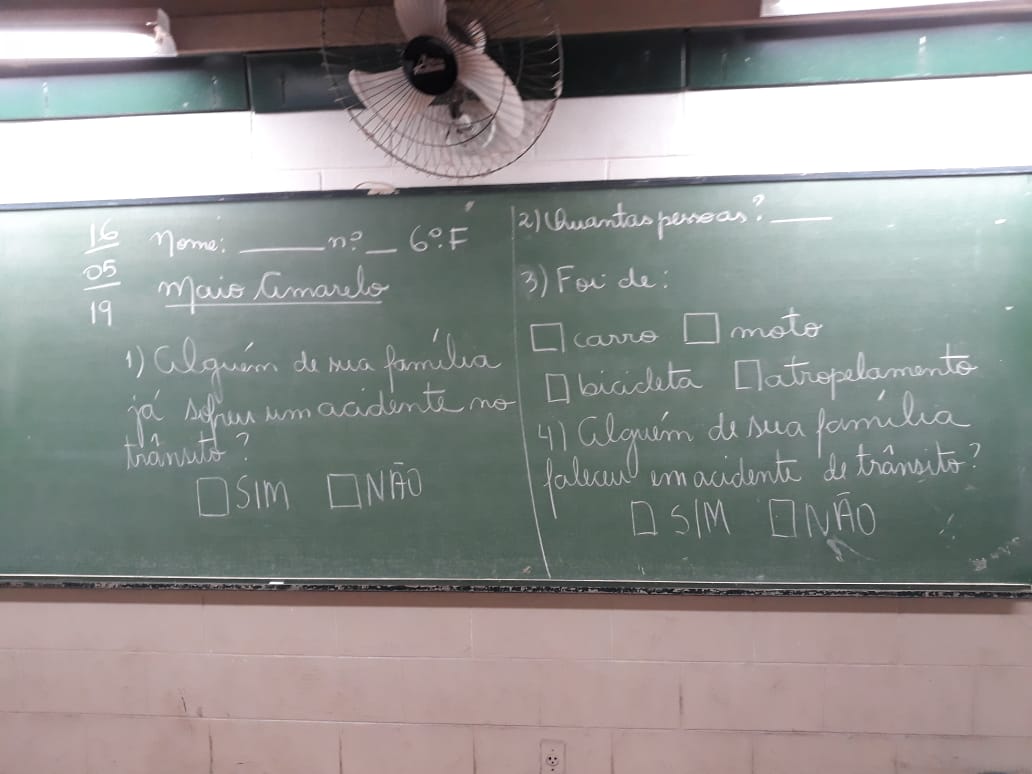 16
05
19
Nome: ______ nº __ 6º F
Maio Amarelo
1) Alguém de sua família
já sofreu um acidente no
trânsito?
SIM NÃO
2) Quantas pessoas? ____
3) Foi de:
carro moto
bicicleta atropelamento
4) Alguém de sua família
faleceu em acidente de trânsito?
SIM NÃO